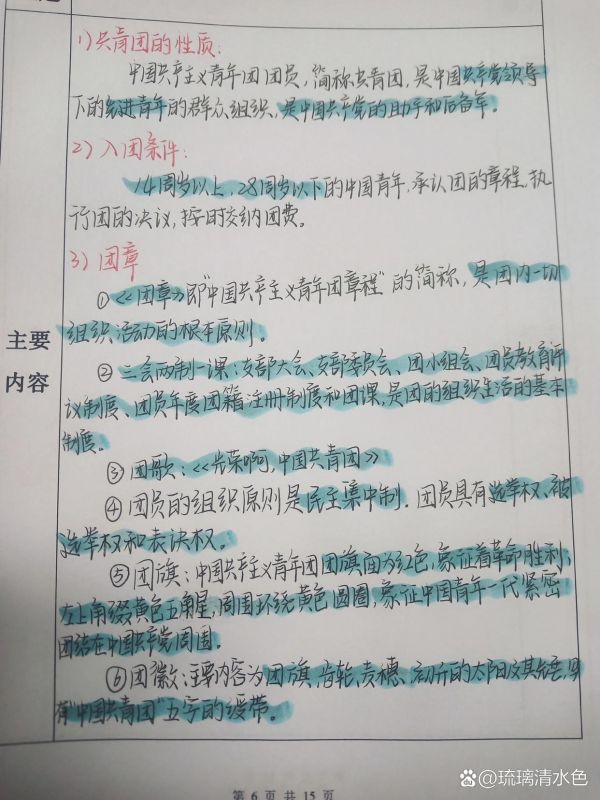 1) 共青团的性质:
中国共产主义青年团团员，简称共青团，是中国共产党领导
下的先进青年的群众组织，是中国共产党的助手和后备军。
2) 入团条件:
14周岁以上，28周岁以下的中国青年，承认团的章程，执
行团的决议，按时交纳团费。
3) 团章
①《团章》即“中国共产主义青年团章程”的简称，是团内一切
组织活动的根本原则。
主要
内容
②三会两制一课：支部大会、支部委员会、团小组会、团员教育评
议制度、团员年度团籍注册制度和团课，是团的组织生活的基本
制度。
③团歌：《光荣啊，中国共青团》
④团员的组织原则是民主集中制。团员具有选举权、被
选举权和表决权。
⑤团旗：中国共产主义青年团团旗面为红色，象征着革命胜利；
左上角缀黄色五角星，周围环绕黄色圆圈，象征中国青年一代紧密
团结在中国共产党周围。
⑥团徽：主要内容为团旗、齿轮、麦穗、初升的太阳及其光芒，写
有“中国共青团”五字的绶带。
第 6 页 共 15 页
@琉璃清水色